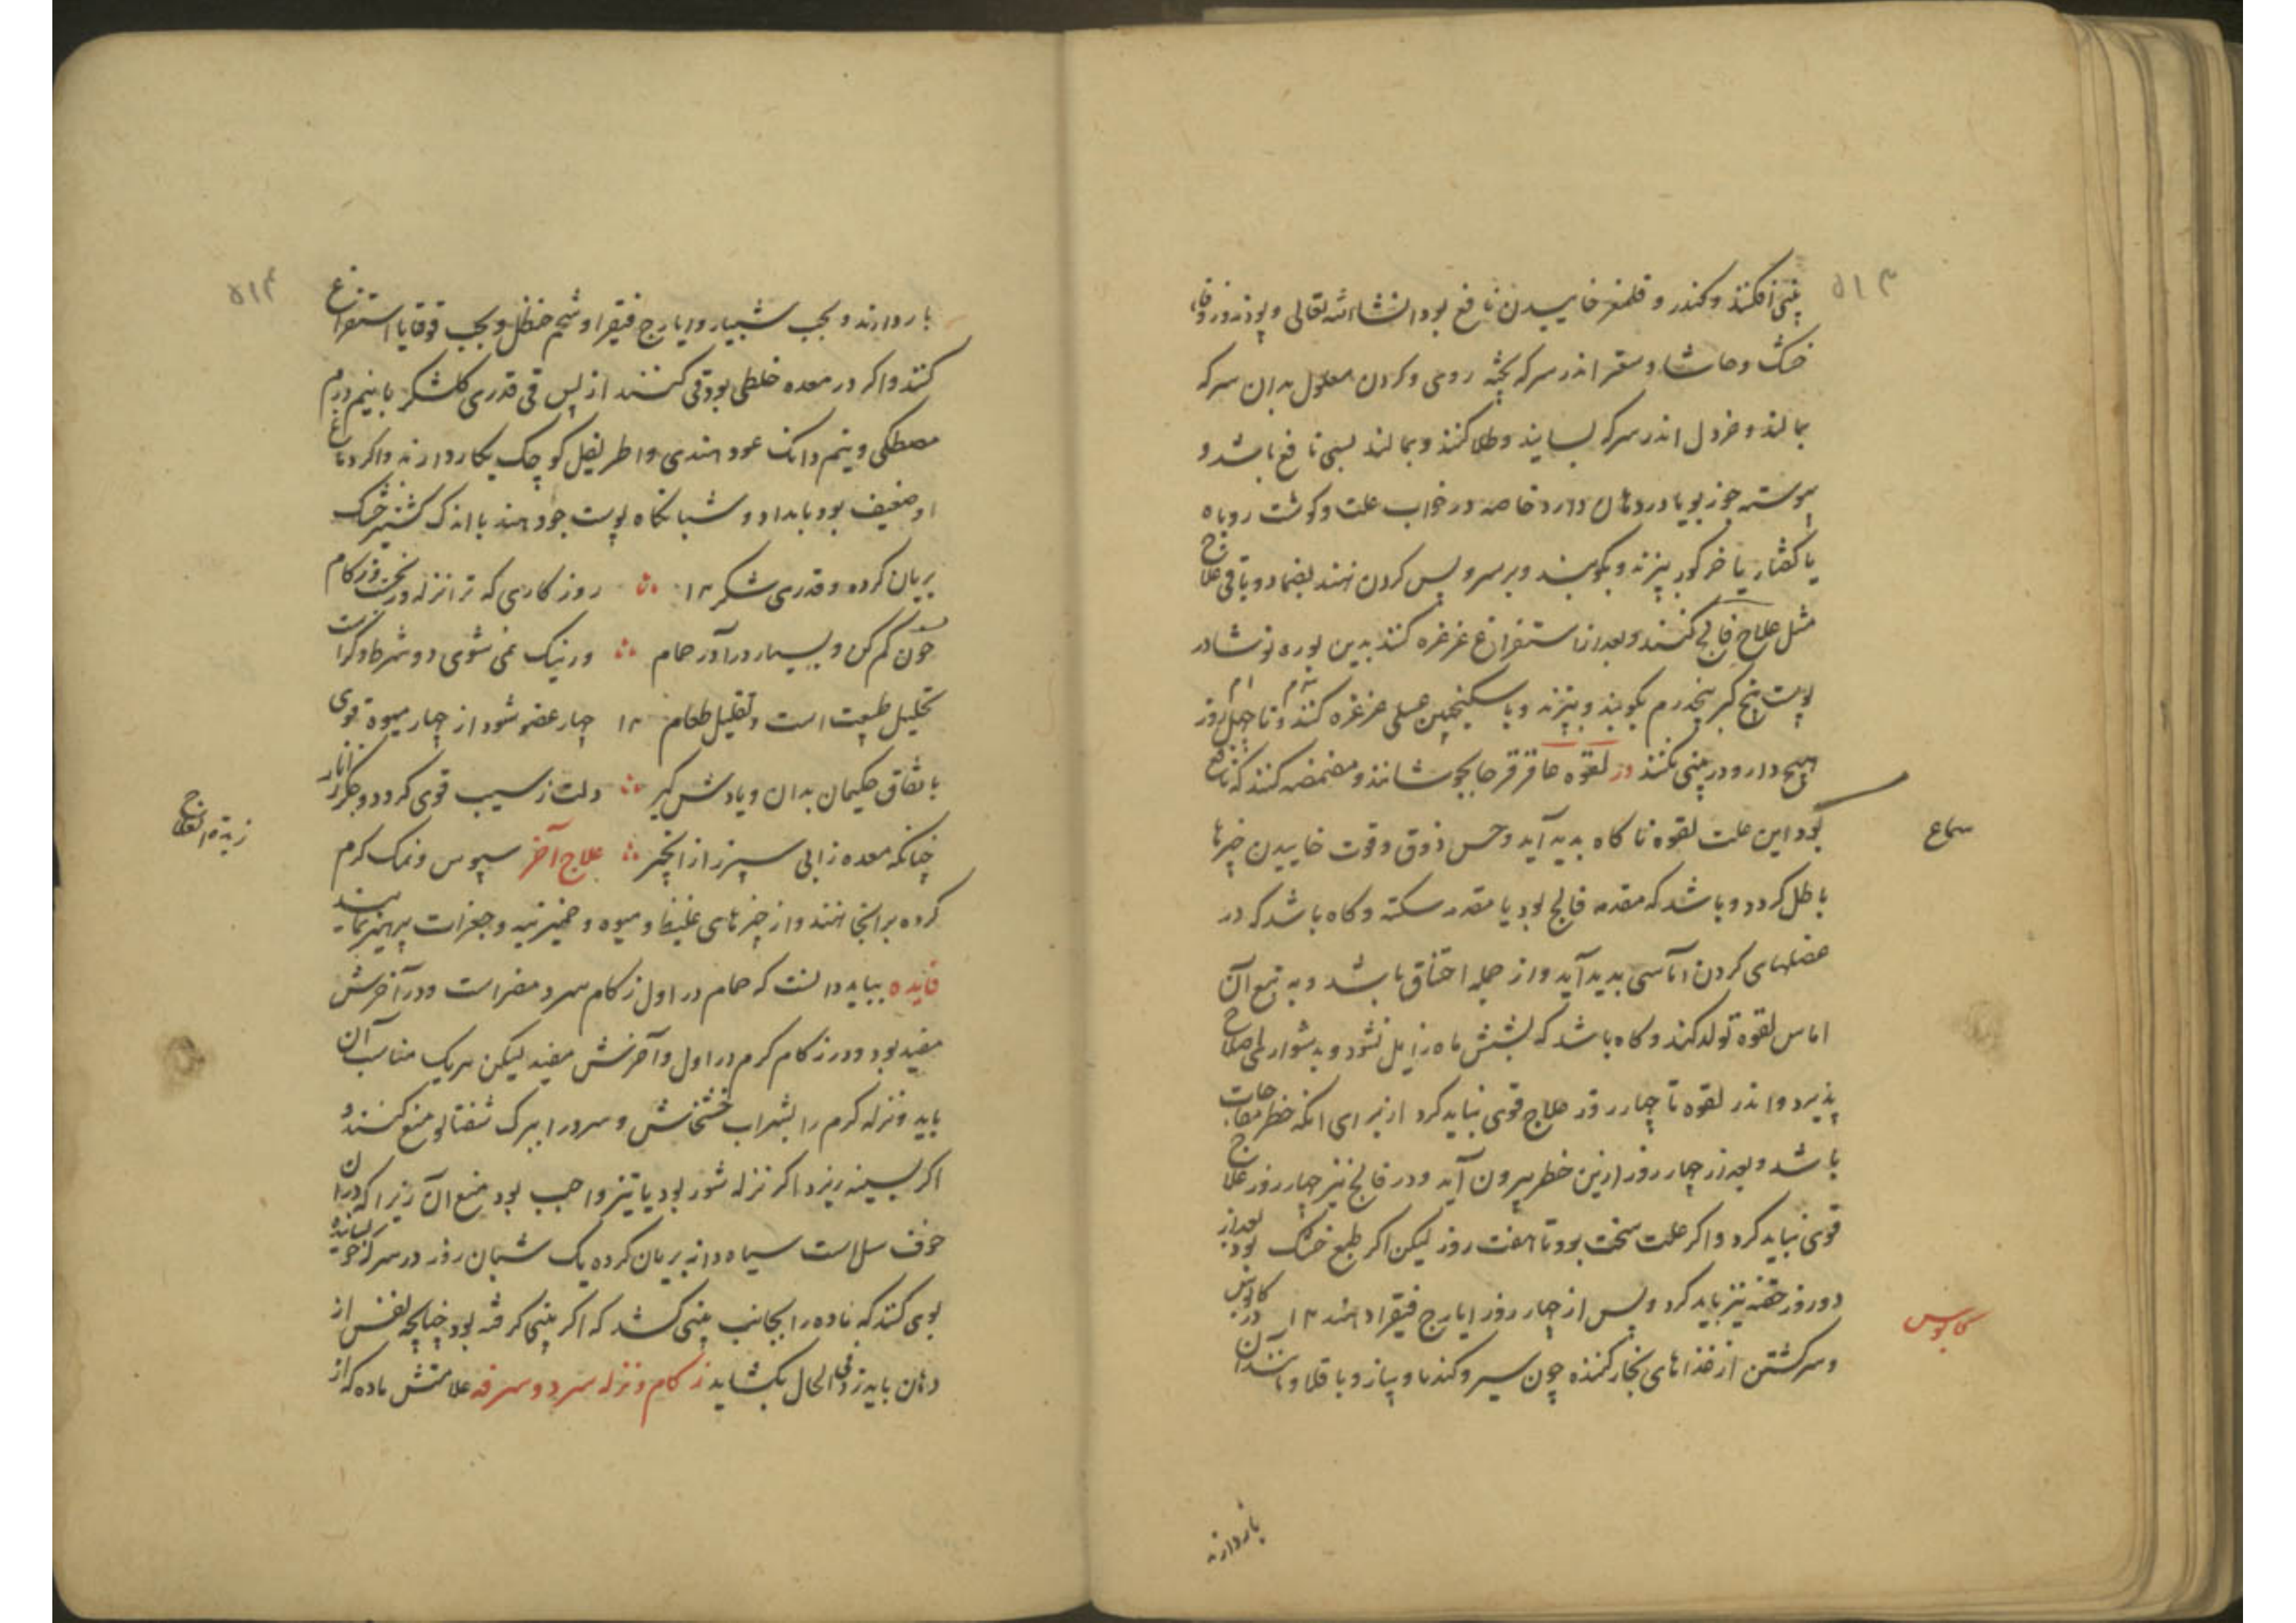 ۵۱۳
بینی افکنند و کندر و قلمفر خاییدن نافع بود انشاء الله تعالی و پودنه و زوفا
خشک و حاشا و سعتر اندر سرکه پخته روی و کردن معلول بدان سرکه
بمالند و خردل اندر سرکه بسایند و طلا کنند و بمالند بسی نافع باشد و
پیوسته جوز بویا در دهان دارد خاصه در خواب علت و کوشت روباه
یا کفتار یا خر کور بپزند و بکوبند و بر سر و پس کردن نهند بضماد و باقی علاج
مثل علاج فالج کنند و بعد از استفراغ غرغره کنند بدین بوره نوشادر
پوست بیخ کبر پنجدرم بکوبند و بپزند و با سکنجبین عسلی غرغره کنند و تا چهل روز
هیچ دارو در بینی نکنند در لقوه عاقرقرحا بجوشانند و مضمضه کنند که نافع
بود این علت لقوه ناکاه بدید آید و حس ذوق و قوت خاییدن چیزها
سماع
باطل کردد و باشد که مقدمه فالج بود یا مقدمه سکته و کاه باشد که در
عضلهای کردن اماسی بدید آید و از جمله اختناق باشد و به تبع آن
اماس لقوه تولد کند و کاه باشد که بشش ماه زایل نشود و بدشواری صلاح
پذیرد و اندر لقوه تا چهار روز علاج قوی نباید کرد از برای انکه خطر مفاجات
باشد و بعد از چهار روز ازین خطر بیرون آید و در فالج نیز چهار روز علاج
قوی نباید کرد و اکر علت سخت بود تا هفت روز لیکن اکر طبع خشک بود بعد از
دو روز حقنه نیز باید کرد و پس از چهار روز ایارج فیقرا دهند ۱۲ در کابوس
کابوس
و سرکشتن از غذاهای بخار کننده چون سیر و کندنا و پیاز و باقلا و مانند آن
باز دارند
۵۱۴
باز دارند و بحب شبیار و ایارج فیقرا و شحم حنظل و بحب قوقایا استفراغ
کنند و اکر در معده خلطی بود قی کنند از پس قی قدری کلشکر با نیم درم
مصطکی و نیم دانک عود هندی و اطریفل کوچک بکار دارند و اکر دماغ
او ضعیف بود بامداد و شبانکاه پوست جود هند با اندک کشنیز خشک
بریان کرده و قدری شکر ۱۲ روز کاری که ترا نزله و زکام
خون کم کن و بسیار درآ در حمام ورنیک نمی شوی دو شرط دکرست
تحلیل طبیعت است و تقلیل طعام ۱۲ چهار عضو شود از چهار میوه قوی
باتفاق حکیمان بدان و یادش کیر دلت ز سیب قوی کردد و جکر ز انار
زبدة العلاج
چنانکه معده ز ابی سپرز از انجیر علاج آخر سپوس و نمک کرم
کرده برانجا نهند و از چیزهای غلیظ و میوه و خمیر نیه و جغرات پرهیز نمایند
فایده بباید دانست که حمام در اول زکام سرد مضر است و در آخرش
مفید بود و در زکام کرم در اول و آخرش مفید لیکن هر یک مناسب آن
باید و نزله کرم را بشراب خشخاش و سرد را ببرک شفتالو منع کنند و
اکر بسینه ریزد اکر نزله شور بود یا تیز واجب بود منع آن زیرا که در ان
خوف سل است سیاه دانه بریان کرده یک شبان روز در سرکه خوسانیده
بوی کنند که ماده را بجانب بینی کشد که اکر بینی کرفته بود چنانچه نفس از
دهان باید زد فی الحال بکشاید زکام و نزله سرد و سرفه علامتش ماده که از